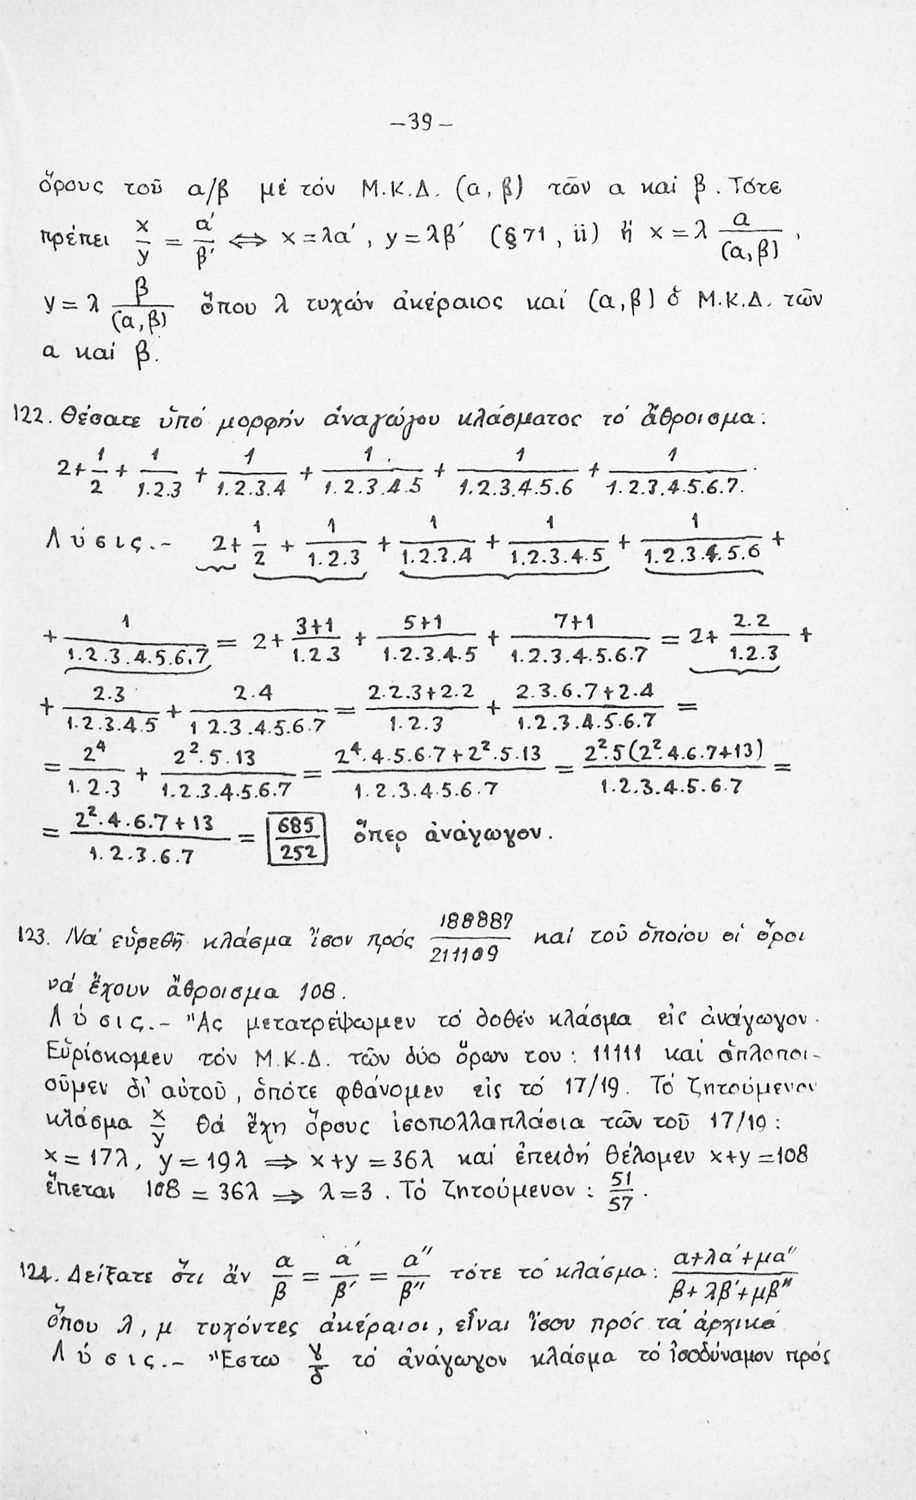 -39-
ὅρους τοῦ α/β μέ τόν Μ.Κ.Δ. (α, β) τῶν α καί β. Τότε
πρέπει x/y = α΄/β΄ ⟺ x = λα΄, y = λβ΄ (§71, ii) ἤ x = λ α/(α, β),
y = λ β/(α, β) ὅπου λ τυχών ἀκέραιος καί (α, β) ὁ Μ.Κ.Δ. τῶν
α καί β.
122. Θέσατε ὑπό μορφήν ἀναγώγου κλάσματος τό ἄθροισμα:
2 + 1/2 + 1/1.2.3 + 1/1.2.3.4 + 1/1.2.3.4.5 + 1/1.2.3.4.5.6 + 1/1.2.3.4.5.6.7.
Λύσις.- 2 + 1/2 + 1/1.2.3 + 1/1.2.3.4 + 1/1.2.3.4.5 + 1/1.2.3.4.5.6 +
+ 1/1.2.3.4.5.6.7 = 2 + 3+1/1.2.3 + 5+1/1.2.3.4.5 + 7+1/1.2.3.4.5.6.7 = 2 + 2.2/1.2.3 +
+ 2.3/1.2.3.4.5 + 2.4/1 2.3.4.5.6.7 = 2.2.3+2.2/1.2.3 + 2.3.6.7+2.4/1.2.3.4.5.6.7 =
= 2⁴/1.2.3 + 2².5.13/1.2.3.4.5.6.7 = 2⁴.4.5.6.7+2².5.13/1.2.3.4.5.6.7 = 2².5(2².4.6.7+13)/1.2.3.4.5.6.7 =
= 2².4.6.7+13/1.2.3.6.7 = 685/252 ὅπερ ἀνάγωγον.
123. Νά εὑρεθῆ κλάσμα ἴσον πρός 188887/211109 καί τοῦ ὁποίου οἱ ὅροι
νά ἔχουν ἄθροισμα 108.
Λύσις.- Ἄς μετατρέψωμεν τό δοθέν κλάσμα εἰς ἀνάγωγον.
Εὑρίσκομεν τόν Μ.Κ.Δ. τῶν δύο ὅρων του: 11111 καί ἁπλοποι-
οῦμεν δι' αὐτοῦ, ὁπότε φθάνομεν εἰς τό 17/19. Τό ζητούμενον
κλάσμα x/y θά ἔχη ὅρους ἰσοπολλαπλάσια τῶν τοῦ 17/19:
x = 17λ, y = 19λ ⟹ x+y = 36λ καί ἐπειδή θέλομεν x+y = 108
ἕπεται 108 = 36λ ⟹ λ = 3. Τό ζητούμενον: 51/57.
124. Δείξατε ὅτι ἄν α/β = α΄/β΄ = α΄΄/β΄΄ τότε τό κλάσμα: α+λα΄+μα΄΄/β+λβ΄+μβ΄΄
ὅπου λ, μ τυχόντες ἀκέραιοι, εἶναι ἴσον πρός τά ἀρχικά
Λύσις.- Ἔστω γ/δ τό ἀνάγωγον κλάσμα τό ἰσοδύναμον πρός